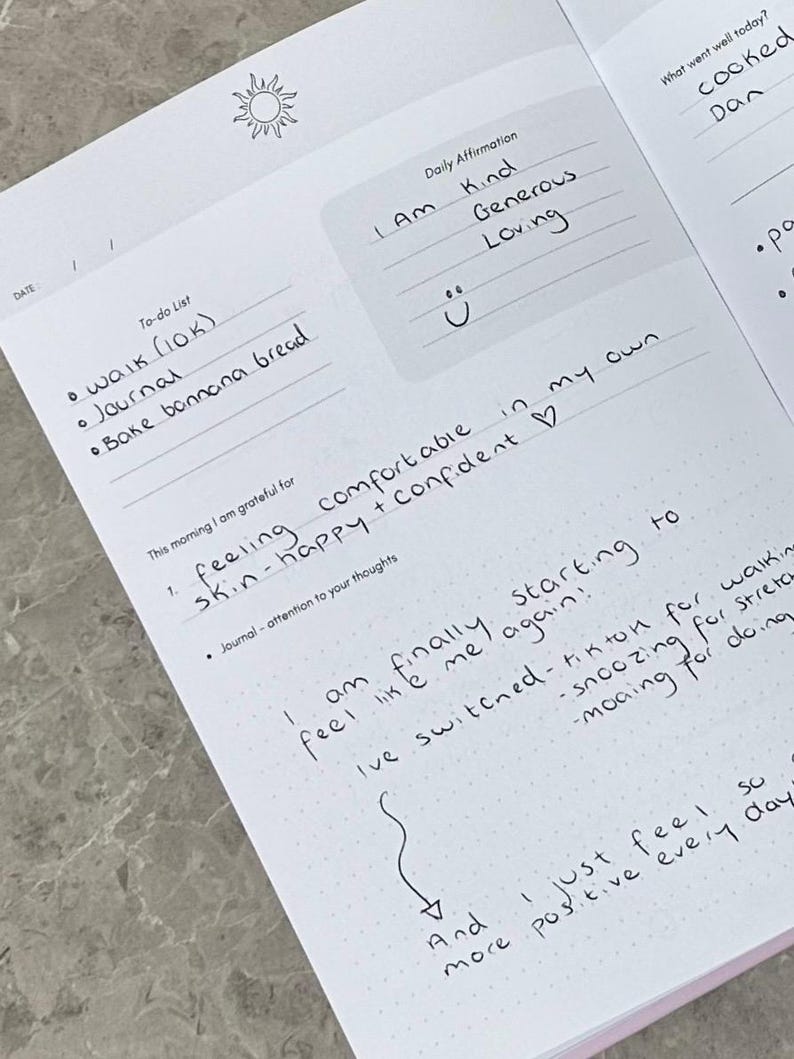 DATE: / /
To-do List
• walk (10K)
• Journal
• Bake bannana bread
Daily Affirmation
I Am Kind
Generous
Loving
This morning I am grateful for
1. feeling comfortable in my own
skin - happy + confident ♡
• Journal - attention to your thoughts
I am finally starting to
feel like me again!
Ive switched - tiktok for walking
- snoozing for
- moaing for doing
And I just feel so
more positive every day
What went well today?
cooked
Dan